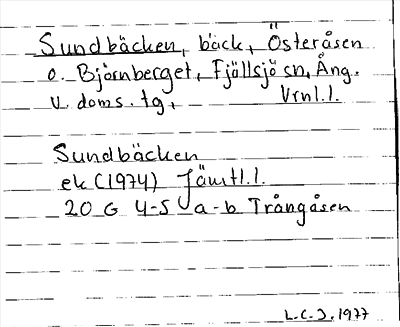 Sundbäcken, bäck, Österåsen
o. Björnberget, Fjällsjö sn, Ång.
v. doms. tg, Vrnl.l.
Sundbäcken
ek (1974) Jämtl.l.
20 G 4-5 a-b Trångåsen
L.C.J. 1977